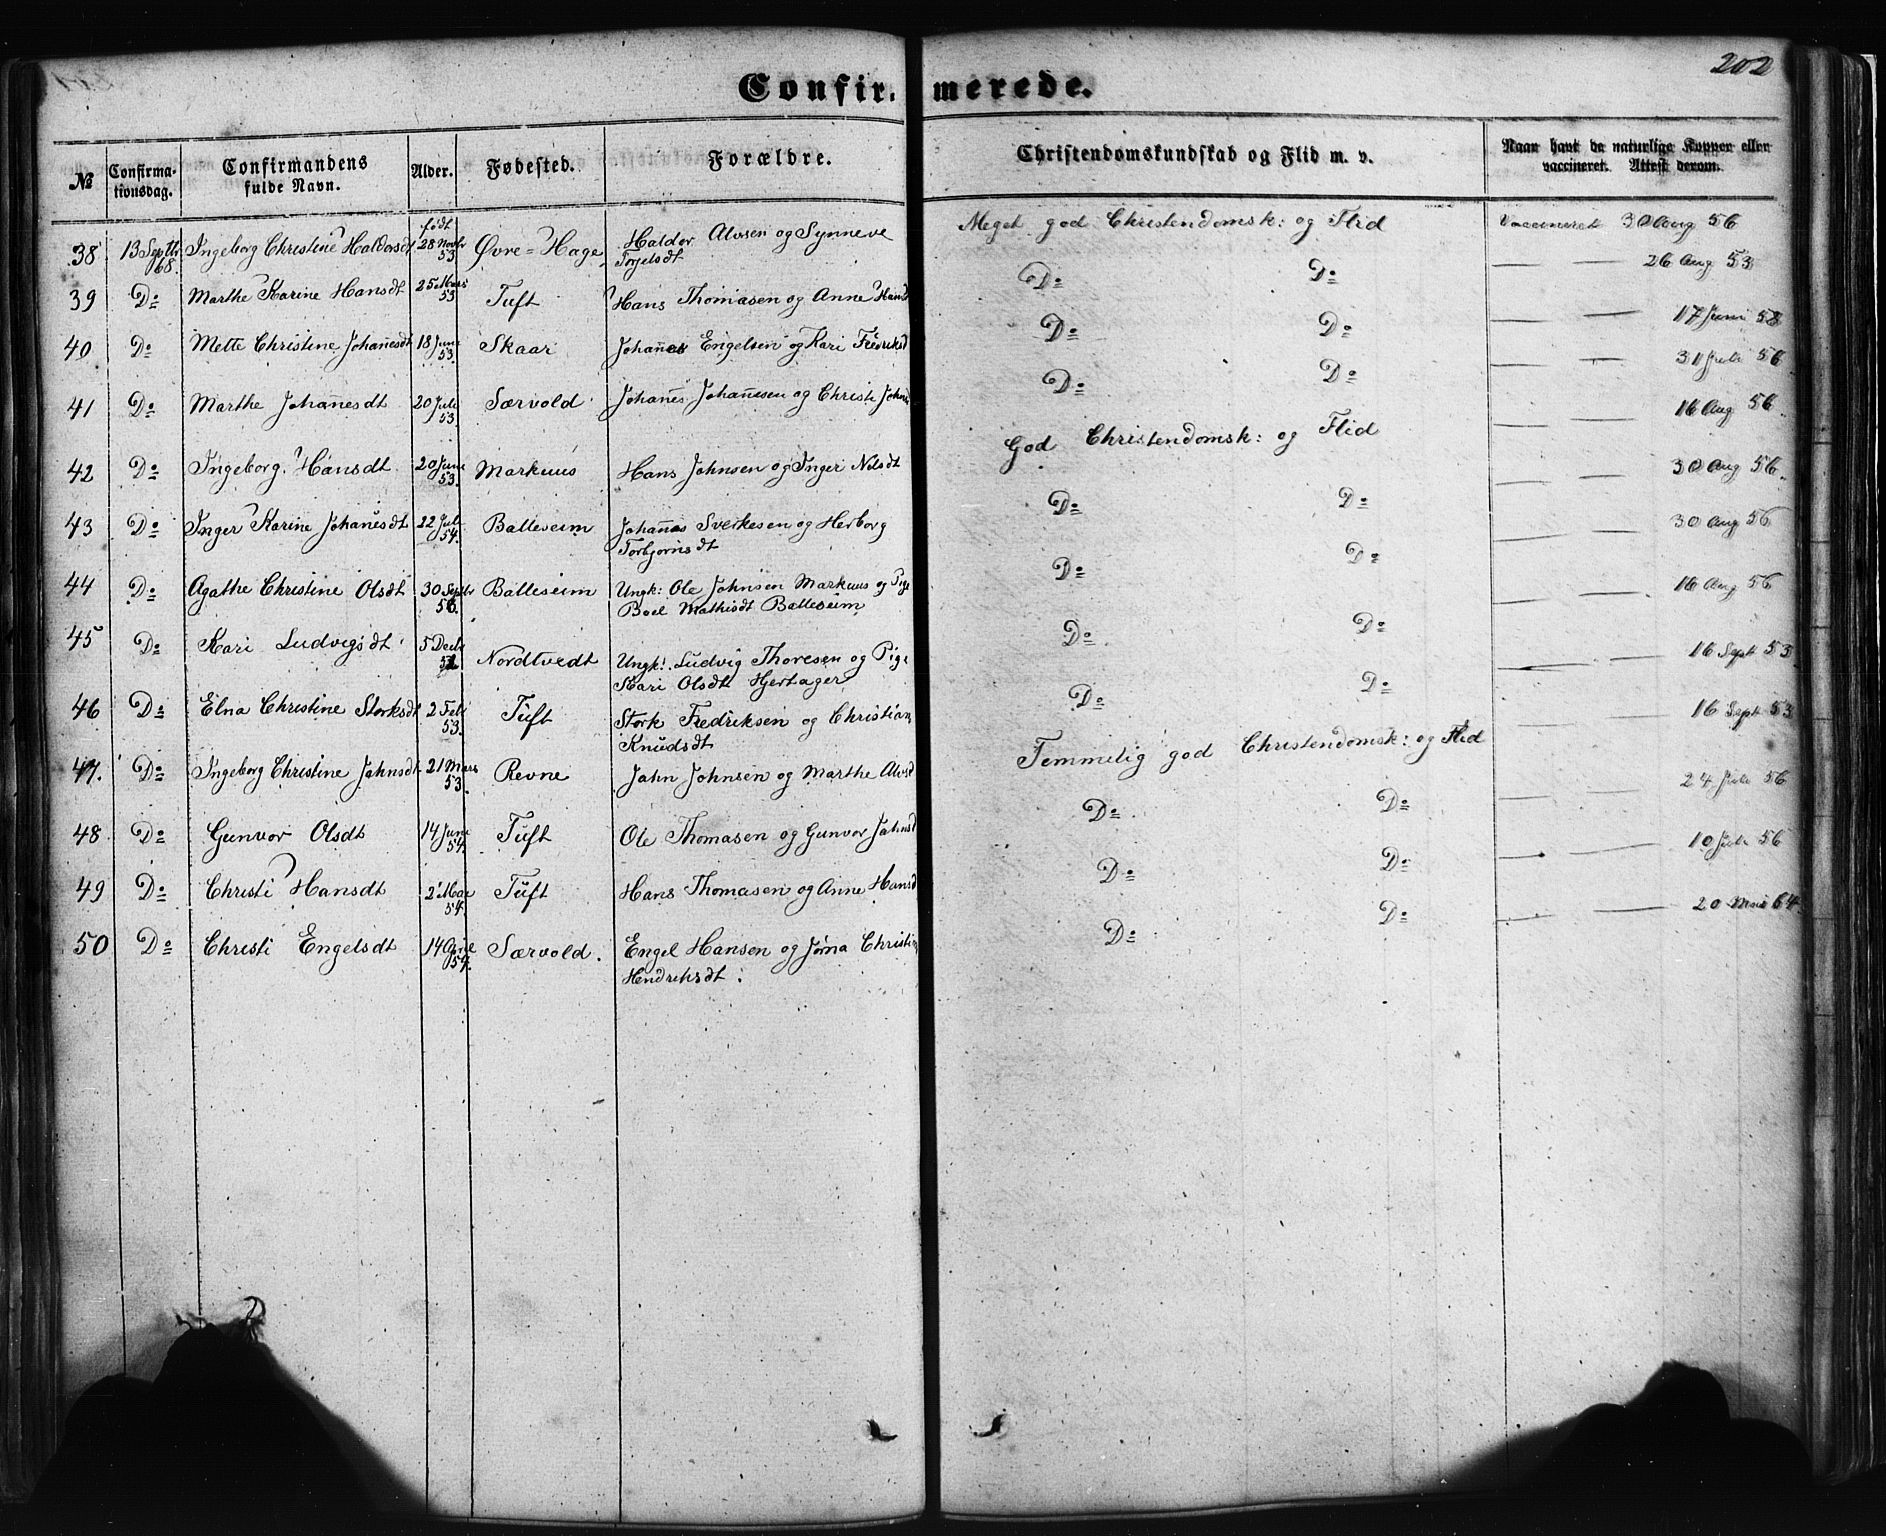 202
Confirmerede.
№ Confirma-tionsdag. Confirmandens fulde Navn. Alder. Fødested. Forældre. Christendomskundskab og Flid m. v. Naar havt de naturlige Kopper eller vaccineret. Attest derom.
38 13 Septbr 68. Ingeborg Christine Haldorsdt født 28 Novbr 53 Øvre=Hage Haldor Alvsen og Synneve Torjelsdt Meget god Christendomsk: og Flid Vaccineret 30 Aug 56
39 Do Marthe Karine Hansdt 25 Mars 53 Tuft Hans Thomasen og Anne Hansdt Do Do — — 26 Aug 53
40 Do Mette Christine Johan̄esdt 18 Juni 53. Skaar Johan̄es Engelsen og Kari Fredriksd Do Do — — 17 Juni 58
41 Do Marthe Johan̄esdt 20 Juli 53 Særvold Johan̄es Johan̄esen og Christi Do Do — — 31 Juli 56
42 Do Ingeborg Hansdt 20 Juni 53. Markuus Hans Johnsen og Inger Nilsdt God Christendomsk: og Flid — — 16 Aug 56
43 Do Inger Karine Johan̄esdt 22 Juli 54. Balleseim Johan̄es Sverkesen og Herborg Torbjørnsdt Do Do — — 30 Aug 56
44 Do Agathe Christine Olsdt 30 Septbr 56. Balleseim Ungk: Ole Johnsen Markuus og Pige Boel Mathisdt Balleseim Do Do — — 30 Aug 56
45 Do Kari Ludvigsdt 5 Decbr Nordtvedt Ungk: Ludvig Thoresen og Pige Kari Olsdt Hjertager Do Do — — 16 Aug 56
46 Do Elna Christine Storksdt 2 Feb 53. Tuft Stork Fredriksen og Christian Knudsdt Do Do — — 16 Sept 53
47. Do Ingeborg Christine Jahnsdt 21 Mars 53 Revne Jahn Johnsen og Marthe Alvsd Temmelig god Christendomsk: og Flid — — 16 Sept 53
48 Do Gunvor Olsdt 14 Juni 54. Tuft Ole Thomasen og Gunvor Jahnsd Do Do — — 24 Juli 56
49 Do Christi Hansdt 2 Mai 54. Tuft Hans Thomasen og Anne Hansd Do Do — — 10 Juli 56
50 Do Christi Engelsdt 14 April 54. Særvold. Engel Hansen og Jørna Christin Hendriksdt. Do Do — — 20 Mai 64.